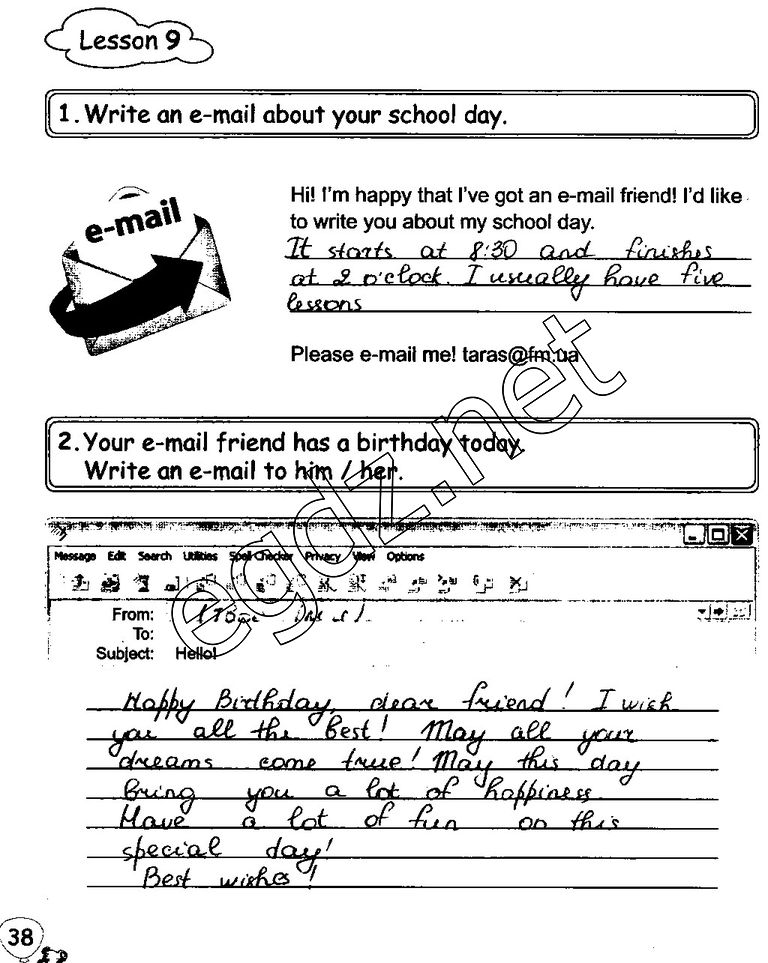 Lesson 9
1. Write an e-mail about your school day.
e-mail
Hi! I'm happy that I've got an e-mail friend! I'd like
to write you about my school day.
It starts at 8:30 and finishes
at 2 o'clock. I usually have five
lessons
Please e-mail me! taras@fm.ua
2. Your e-mail friend has a birthday today.
Write an e-mail to him / her.
egdz.net
Message Edit Search Utilities Spell Checker Privacy View Options
From:
To:
Subject: Hello!
Happy Birthday, dear friend! I wish
you all the best! May all your
dreams come true! May this day
bring you a lot of happiness.
Have a lot of fun on this
special day!
Best wishes!
38